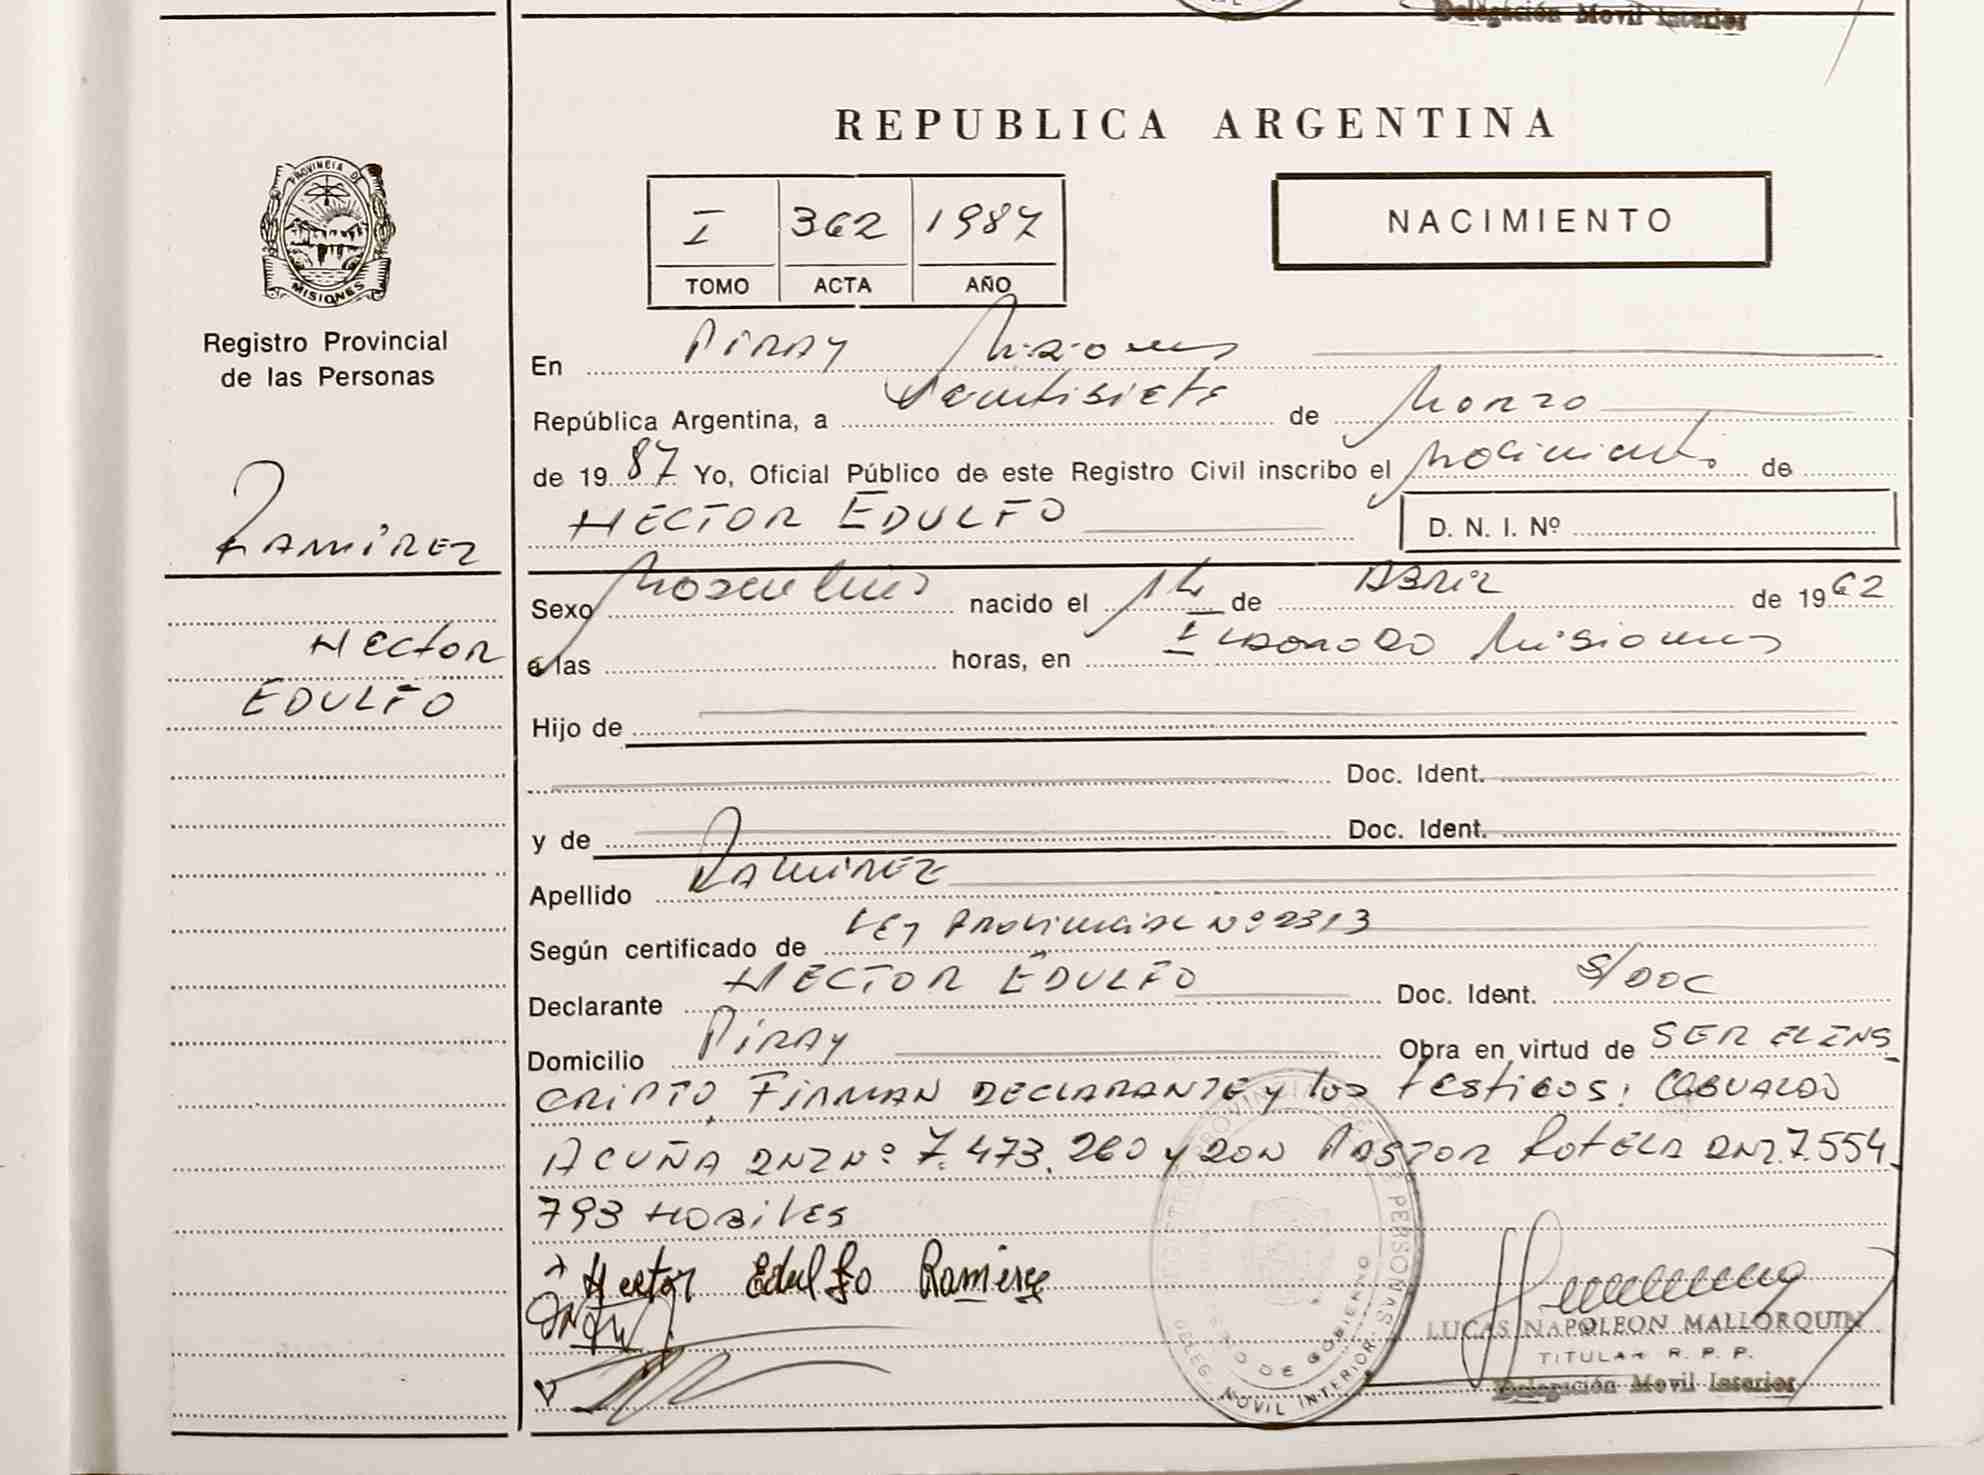 Delegación Movil Interior
REPUBLICA ARGENTINA
PROVINCIA DE
MISIONES
Registro Provincial
de las Personas
I 362 1987
TOMO ACTA AÑO
NACIMIENTO
En PIRAY Misiones
República Argentina, a Veintisiete de Marzo
de 19 87 Yo, Oficial Público de este Registro Civil inscribo el Nacimiento de
HECTOR EDULFO D. N. I. Nº
RAMIREZ
HECTOR
EDULFO
Sexo Masculino nacido el 14 de ABRIL de 19 62
a las horas, en ELDORADO Misiones
Hijo de
Doc. Ident.
y de Doc. Ident.
Apellido RAMIREZ
Según certificado de LEY PROVINCIAL Nº 2313
Declarante HECTOR EDULFO Doc. Ident. S/DOC
Domicilio PIRAY Obra en virtud de SER EL INS
CRIPTO, FIRMAN DECLARANTE y los TESTIGOS: OSVALDO
ACUÑA DNI Nº 7.473.260 y DON PASTOR ROTELA DNI.7.554.
793 HABILES
Hector Edulfo Ramirez
REGISTRO PROVINCIAL DE LAS PERSONAS
DE GOBIERNO
DELEG. MOVIL INTERIOR
LUCAS NAPOLEON MALLORQUIN
TITULAR R. P. P.
Delegación Movil Interior